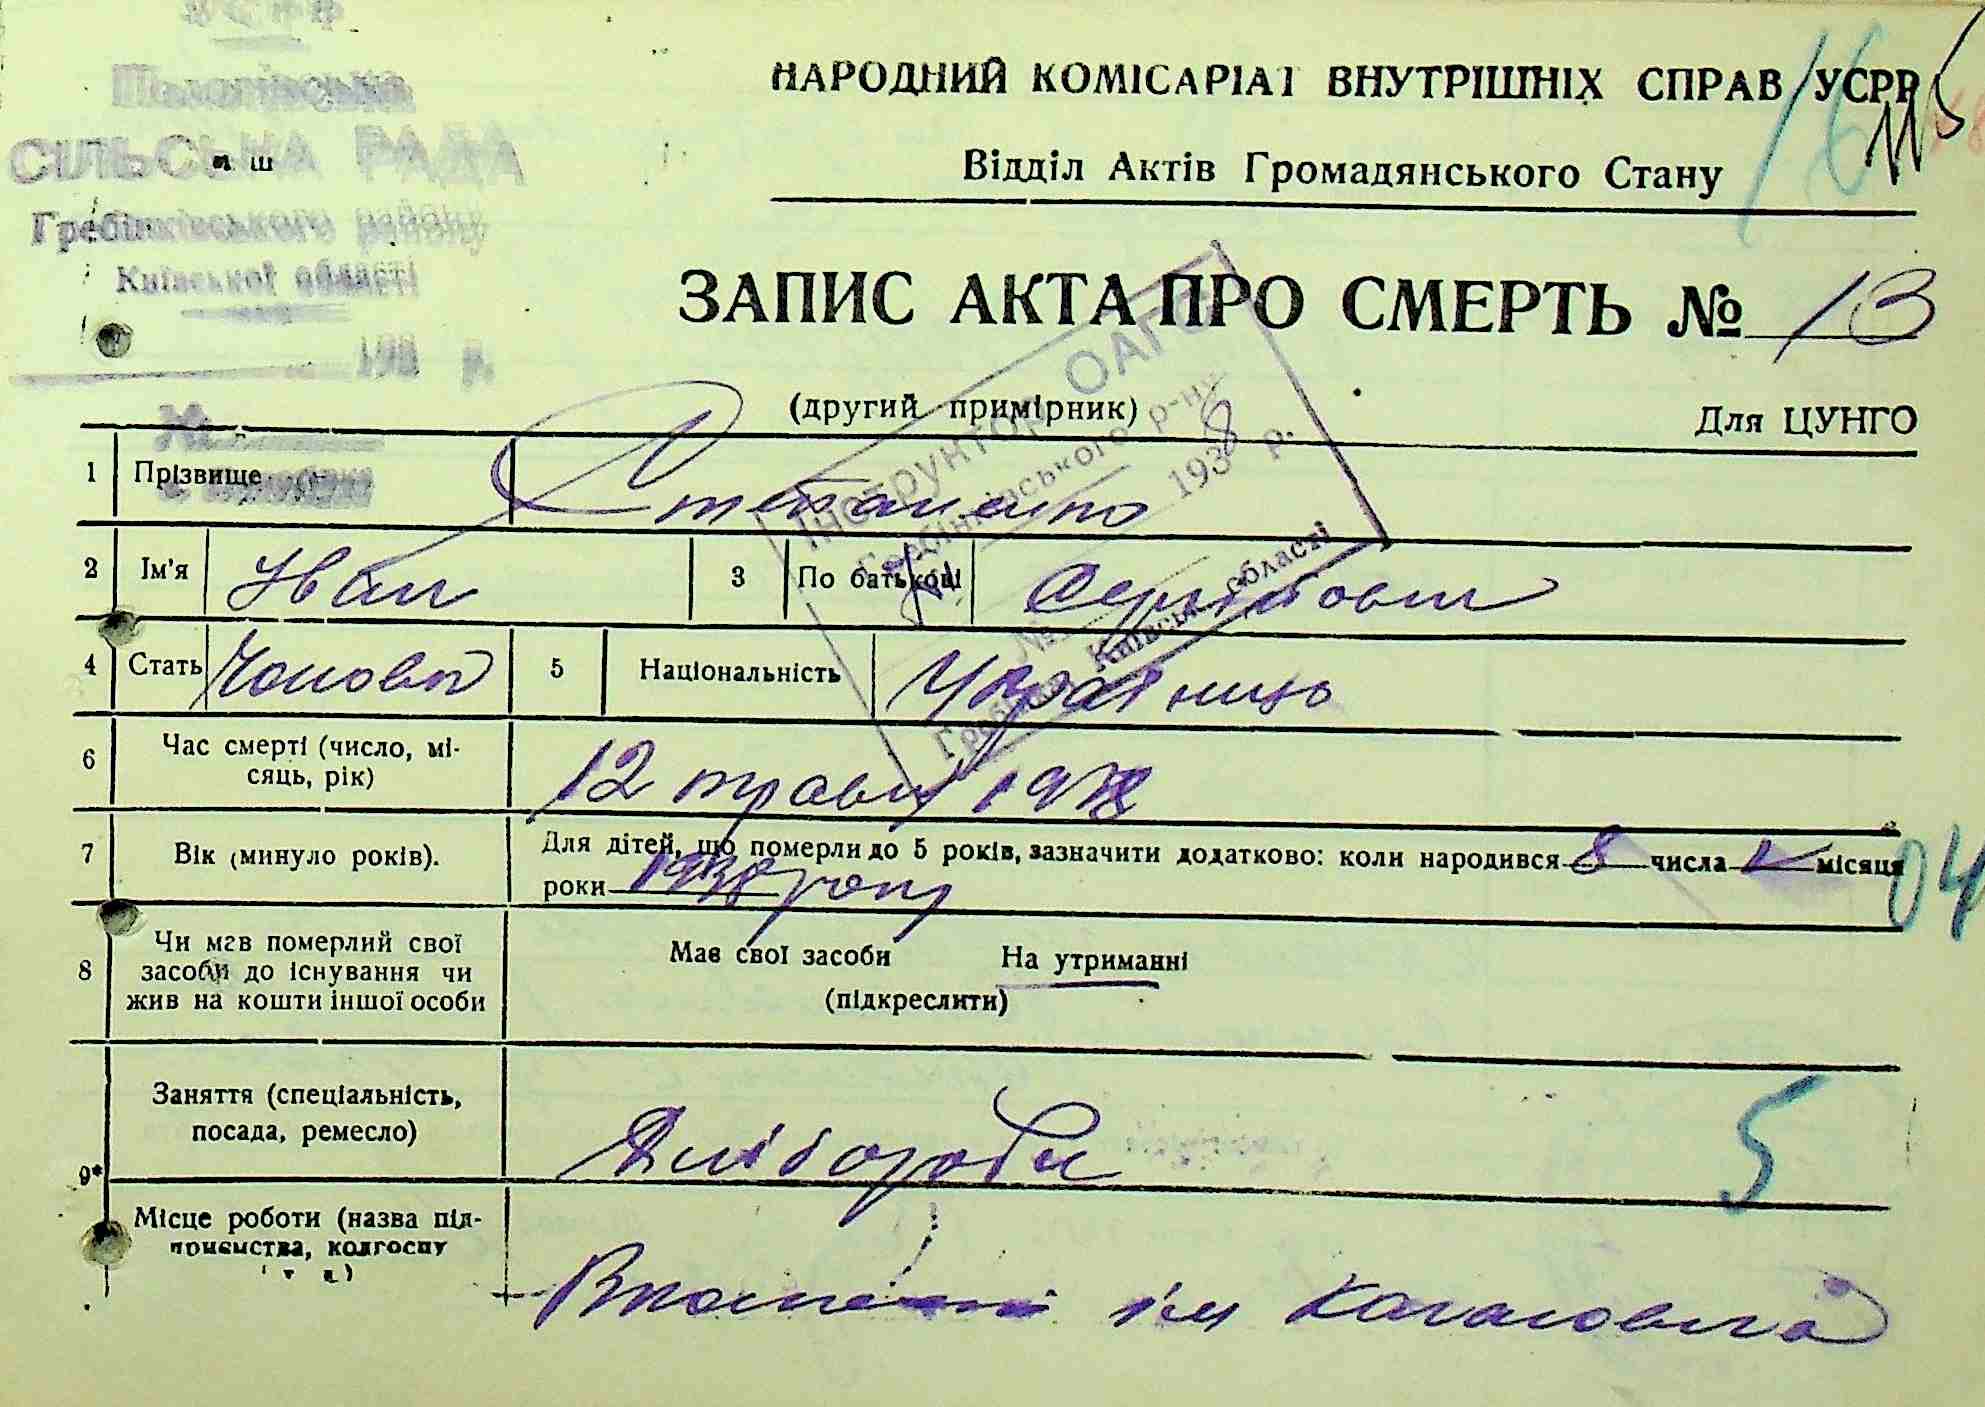 СІЛЬСЬКА РАДА
Гребінківського району
Київської області
193 р.
НАРОДНИЙ КОМІСАРІАТ ВНУТРІШНІХ СПРАВ УСРР
16
Відділ Актів Громадянського Стану
ЗАПИС АКТА ПРО СМЕРТЬ № 13
(другий примірник)
Для ЦУНГО
Інструктор ОАГС
Гребінківського р-ну
1938 р.
Київської області
1 Прізвище Степаненко
2 Ім'я Іван 3 По батькові Сергійович
4 Стать Чоловіч 5 Національність Українець
6 Час смерті (число, мі-
сяць, рік) 12 травня 1938
7 Вік (минуло років). Для дітей, що померли до 5 років, зазначити додатково: коли народився 8 числа V місяця
роки 1938 року
04
8 Чи мав померлий свої
засоби до існування чи
жив на кошти іншої особи
Має свої засоби На утриманні
(підкреслити)
9* Заняття (спеціальність,
посада, ремесло) Хлібороби
5
Місце роботи (назва під-
приємства, колгоспу
і т. д.)
В колгоспі ім Кагановича